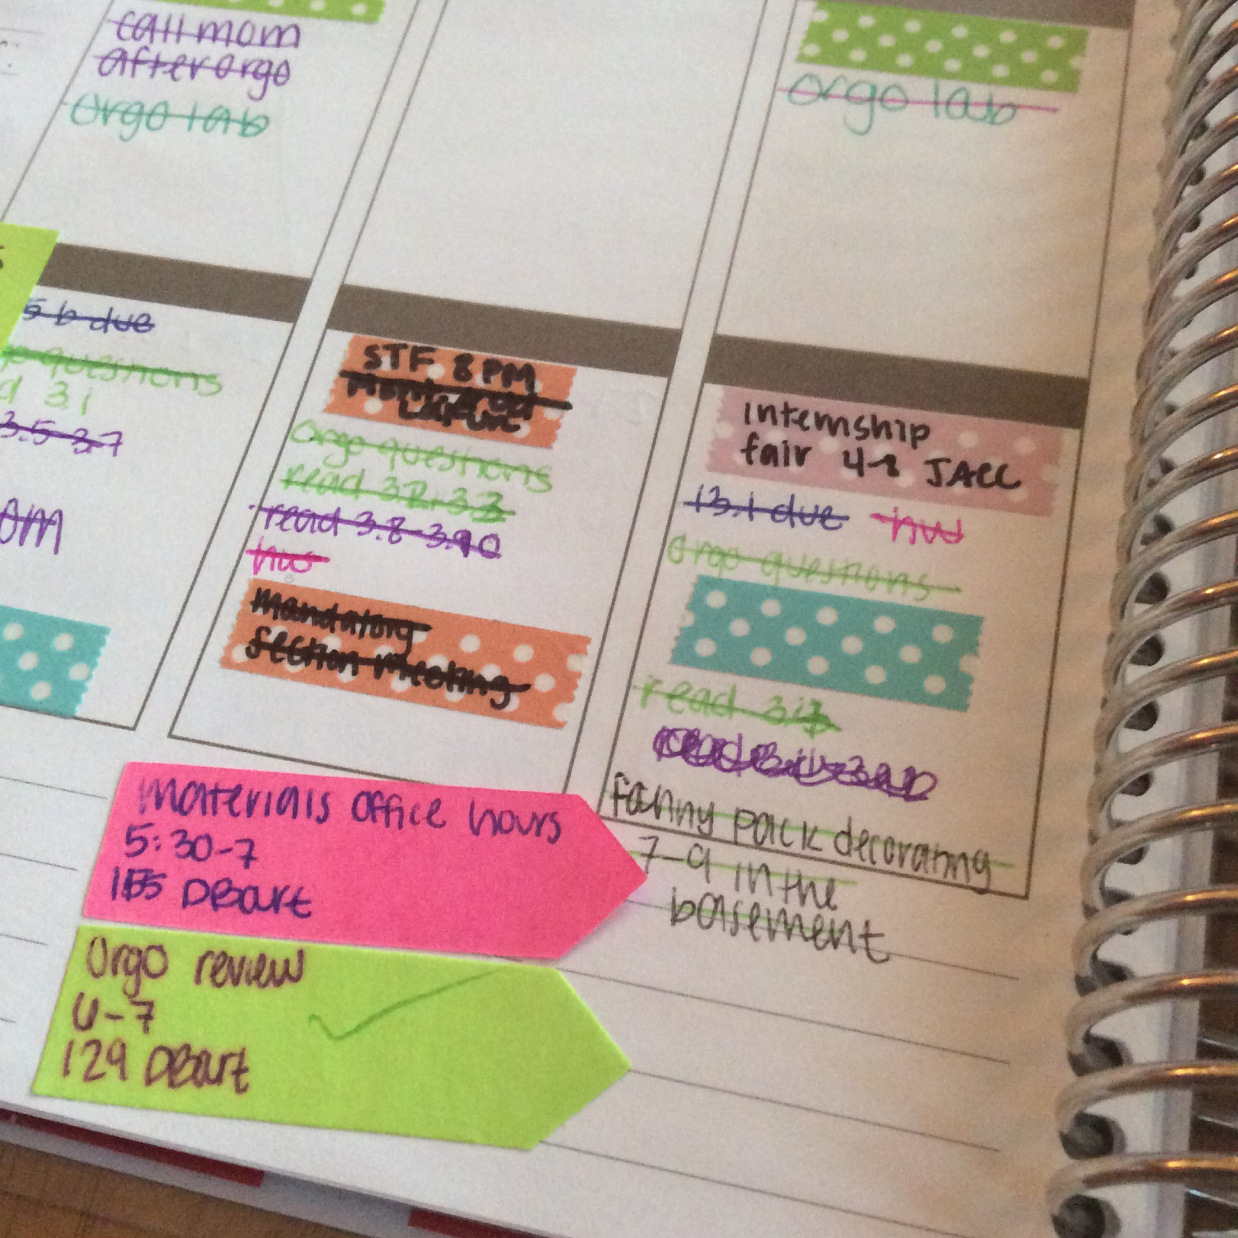 call mom
after orgo
orgo lab
orgo lab
5 b due
questions
3.1
3.5-3.7
STF 8 PM
orgo questions
read 3.2, 3.3
read 3.8-3.10
hw
mandatory
section meeting
internship
fair 4-8 JACC
13.1 due hw
orgo questions
read
fanny pack decorating
7-9 in the
basement
materials office hours
5:30-7
155 DBart
Orgo review
6-7
129 DBart